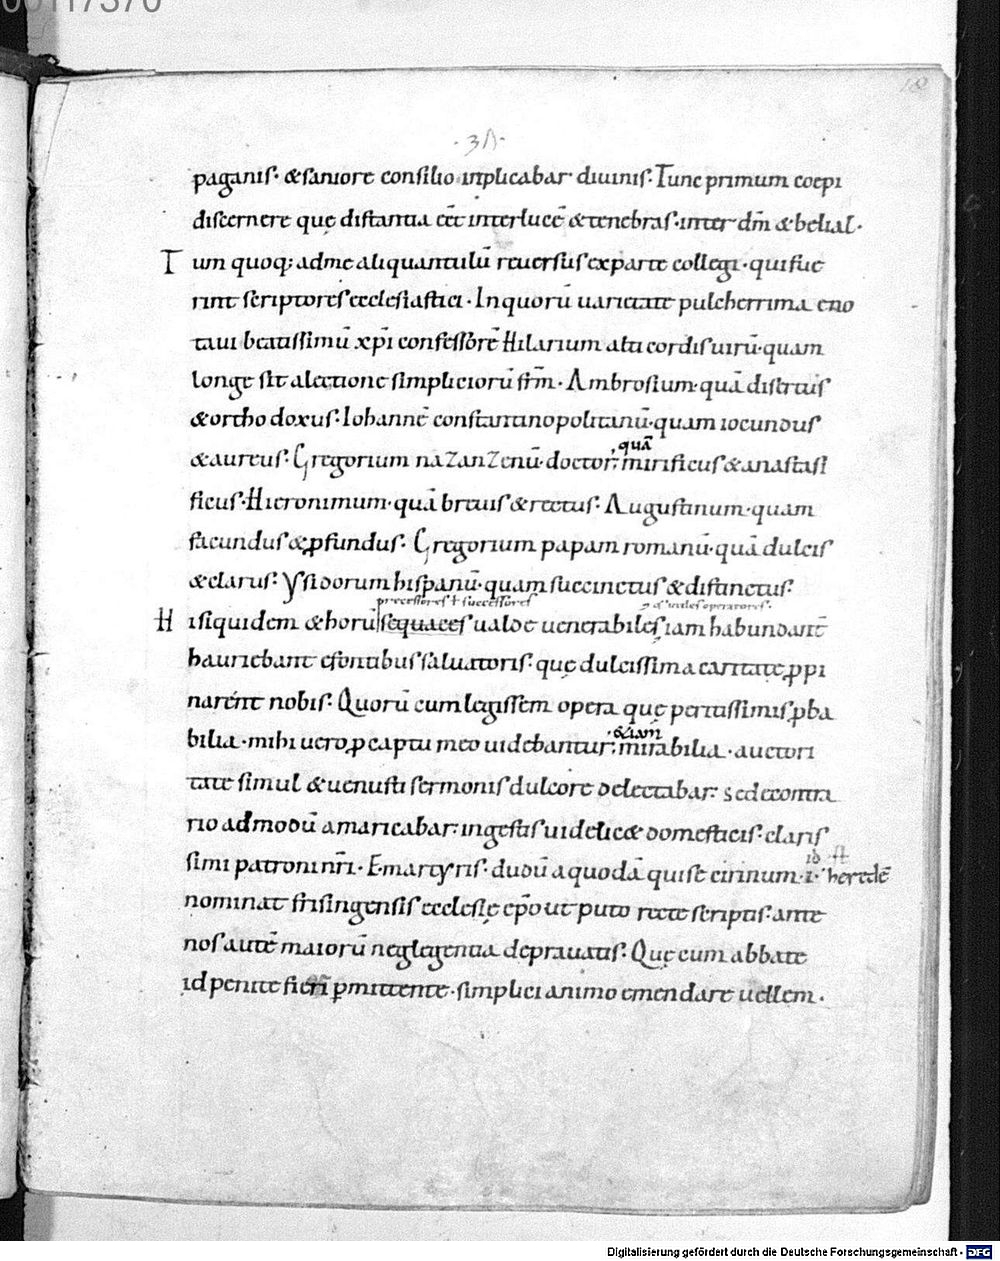 00117370
18
paganis· & saniore consilio inplicabar diuinis· Tunc primum coepi
discernere quę distantia eēt inter lucē & tenebras· inter dm̄ & belial·
Tum quoq; ad me aliquantulū reuersus ex parte collegi· qui fue
rint scriptores ecclesiastici· In quorū uarietate pulcherrima eno
taui beatissimū xp̄i confessorē Hilarium alti cordis uirū· quam
longe sit a lectione simpliciorū frm̄· Ambrosium· quā disertus
& orthodoxus· Iohannē constantinopolitanū· quam iocundus
& aureus· Gregorium nazanzenū· doctor·
,quā
mirificus & anastasi
ficus· Hieronimum· quā breuis & rectus· Augustinum· quam
facundus & ꝓfundus· Gregorium papam romanū· quā dulcis
& clarus· Ysidorum hispanū· quam succinctus & distinctus·
precessores ł successores
Hi siquidem & horū sequaces ualde uenerabiles, iam habundant̄
hauriebant e fontibus saluatoris· quę dulcissima caritate ꝓpi
narent nobis· Quorū cum legissem opera quę peritissimis ꝓba
bilia· mihi uero ꝓ captu meo uidebantur·
·&iam
mirabilia· auctori
tate simul & uenusti sermonis dulcore delectabar· sed econtra
rio admodū amaricabar· in gestis uidelic& domesticis· claris
simi patroni nr̄i· Emartyris· dudū a quodā qui se cirinum·i· heredē
nominat frisingensis ecclesię ep̄o ut puto recte scriptis· ante
nos autē maiorū neglegentia deprauatis· Quę cum abbate
id penite fieri ꝑmittente· simplici animo emendare uellem·
Digitalisierung gefördert durch die Deutsche Forschungsgemeinschaft - DFG